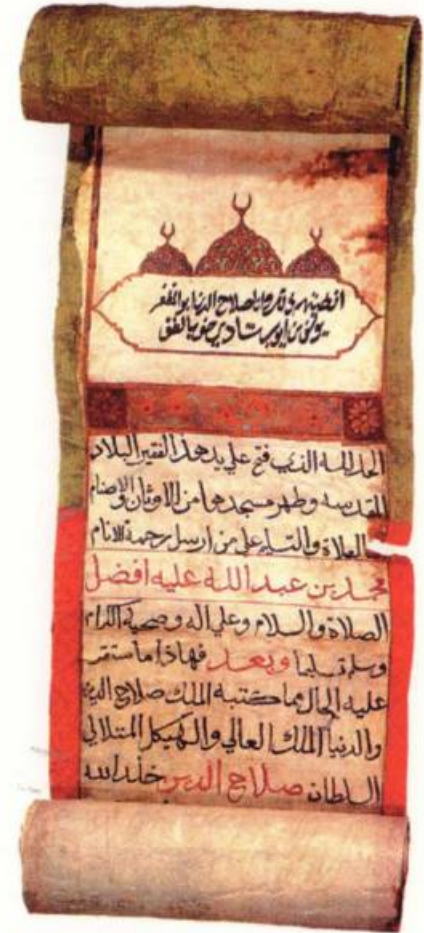 صلاح الدنيا
يوسف بن أيوب شادي
الحمد لله الذي فتح علي يد هذا الفقير البلاد
المقدسه وطهر مسجدها من الاوثان والاصنام
والصلاة والتسليم علي من ارسل رحمة للانام
محمد بن عبد الله عليه افضل
الصلاة والسلام وعلي اله وصحبه الكرام
وسلم تسليما وبعد فهاذا ما ستقر
عليه الحال مما كتبه الملك صلاح الدين
والدنيا الملك العالي والهيكل المتلالي
السلطان صلاح الدين خلد الله